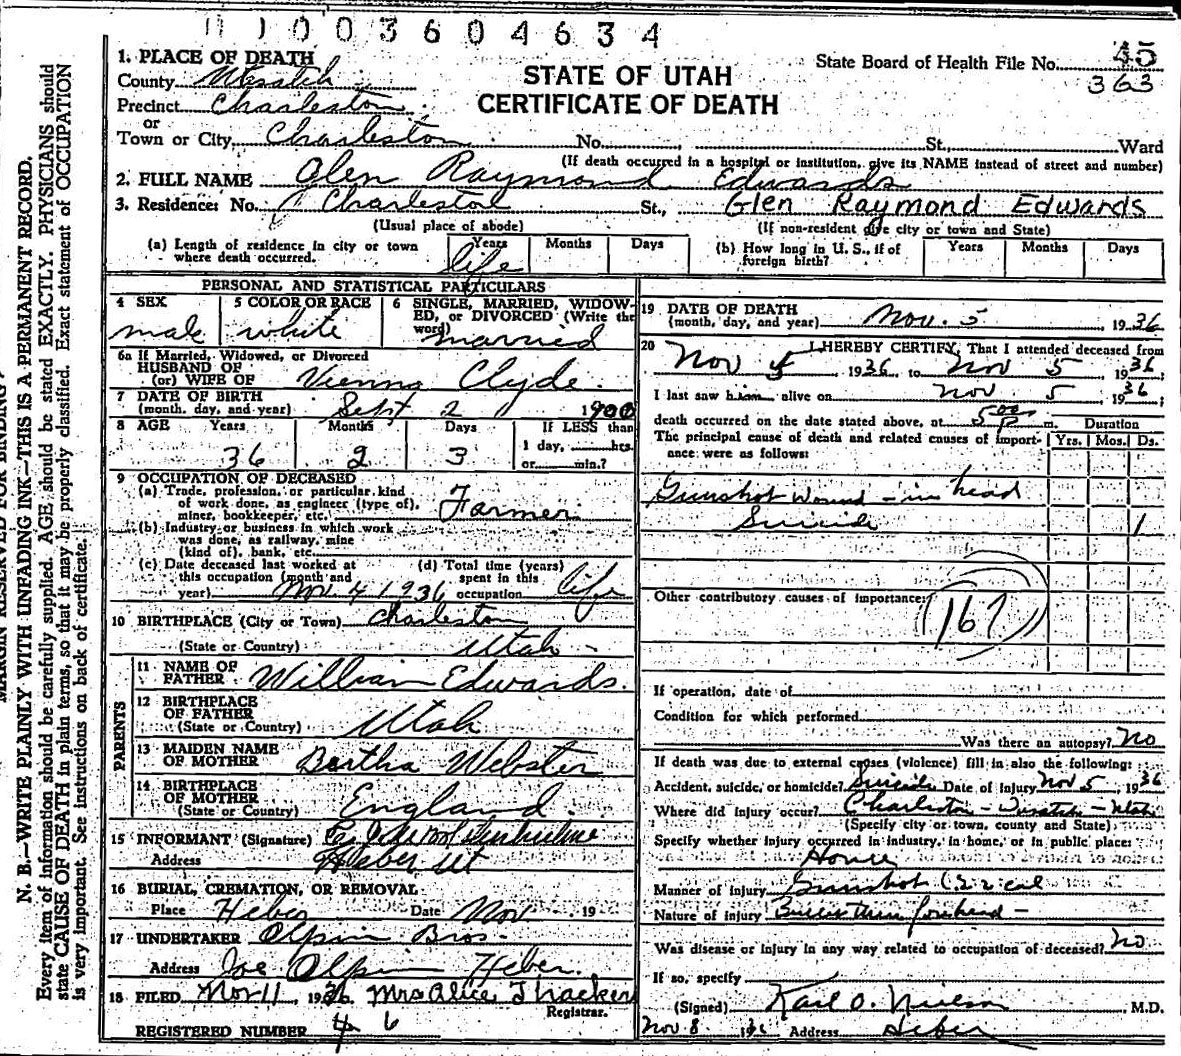 11003604634
State Board of Health File No. 45
363
STATE OF UTAH
CERTIFICATE OF DEATH
1. PLACE OF DEATH
County Wasatch
Precinct Charleston
or
Town or City Charleston No. St., Ward
(If death occurred in a hospital or institution, give its NAME instead of street and number)
2. FULL NAME Glen Raymond Edwards
3. Residence: No. Charleston St., Glen Raymond Edwards
(Usual place of abode) (If non-resident give city or town and State)
(a) Length of residence in city or town where death occurred. Years Months Days
life
(b) How long in U. S., if of foreign birth? Years Months Days
PERSONAL AND STATISTICAL PARTICULARS
4 SEX 5 COLOR OR RACE 6 SINGLE, MARRIED, WIDOW-
ED, or DIVORCED (Write the
word)
male white married
6a If Married, Widowed, or Divorced
HUSBAND OF
(or) WIFE OF Vienna Clyde
7 DATE OF BIRTH
(month, day, and year) Sept 2 1900
8 AGE Years Months Days If LESS than
1 day, hrs.
or min.?
36 2 3
9 OCCUPATION OF DECEASED
(a) Trade, profession, or particular kind
of work done, as engineer (type of),
miner, bookkeeper, etc. Farmer
(b) Industry or business in which work
was done, as railway, mine
(kind of), bank, etc.
(c) Date deceased last worked at
this occupation (month and
year) Nov 4 1936
(d) Total time (years)
spent in this
occupation life
10 BIRTHPLACE (City or Town) Charleston
(State or Country) Utah
PARENTS
11 NAME OF
FATHER William Edwards
12 BIRTHPLACE
OF FATHER
(State or Country) Utah
13 MAIDEN NAME
OF MOTHER Bertha Webster
14 BIRTHPLACE
OF MOTHER
(State or Country) England
15 INFORMANT (Signature)
Address Heber Ut
16 BURIAL, CREMATION, OR REMOVAL
Place Heber Date Nov 19
17 UNDERTAKER Olpin Bros.
Address Joe Olpin Heber.
18 FILED Nov 11, 1936 Mrs Alice Thacker
Registrar.
REGISTERED NUMBER 4 6
19 DATE OF DEATH
(month, day, and year) Nov. 5, 1936
20 I HEREBY CERTIFY, That I attended deceased from
Nov 5, 1936 to Nov 5, 1936;
I last saw him alive on Nov 5, 1936;
death occurred on the date stated above, at 5 00 p m.
Duration
The principal cause of death and related causes of import-
ance were as follows: Yrs. Mos. Ds.
Gunshot wound - in head
Suicide 1
Other contributory causes of importance:
167
If operation, date of
Condition for which performed
Was there an autopsy? No
If death was due to external causes (violence) fill in also the following:
Accident, suicide, or homicide? Suicide Date of injury Nov 5, 1936
Where did injury occur? Charleston - Wasatch - Utah
(Specify city or town, county and State)
Specify whether injury occurred in industry, in home, or in public place:
Home
Manner of injury Gunshot (22 cal
Nature of injury Bullet thru forehead -
Was disease or injury in any way related to occupation of deceased? No
If so, specify
(Signed) Karl O. Nielson M.D.
Nov 8 1936 Address Heber
MARGIN RESERVED FOR BINDING
N. B.—WRITE PLAINLY WITH UNFADING INK—THIS IS A PERMANENT RECORD.
Every item of information should be carefully supplied. AGE should be stated EXACTLY. PHYSICIANS should
state CAUSE OF DEATH in plain terms, so that it may be properly classified. Exact statement of OCCUPATION
is very important. See instructions on back of certificate.